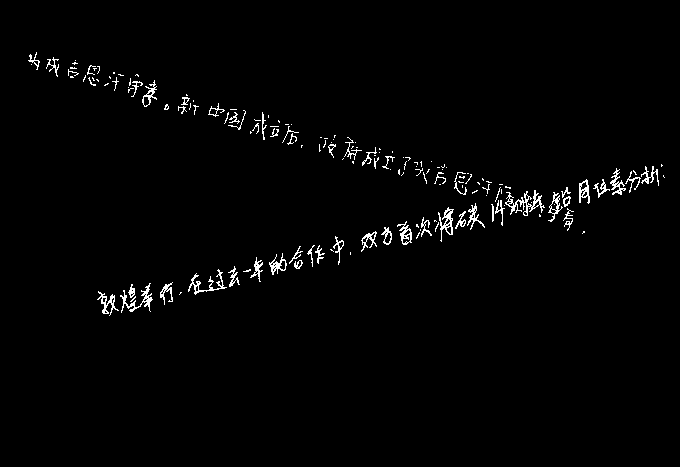 为成吉思汗守孝。新中国成立后,政府成立了成吉思汗
敦煌举行.在过去一年的合作中,双方首次将碳14测年、铅同位素分析: